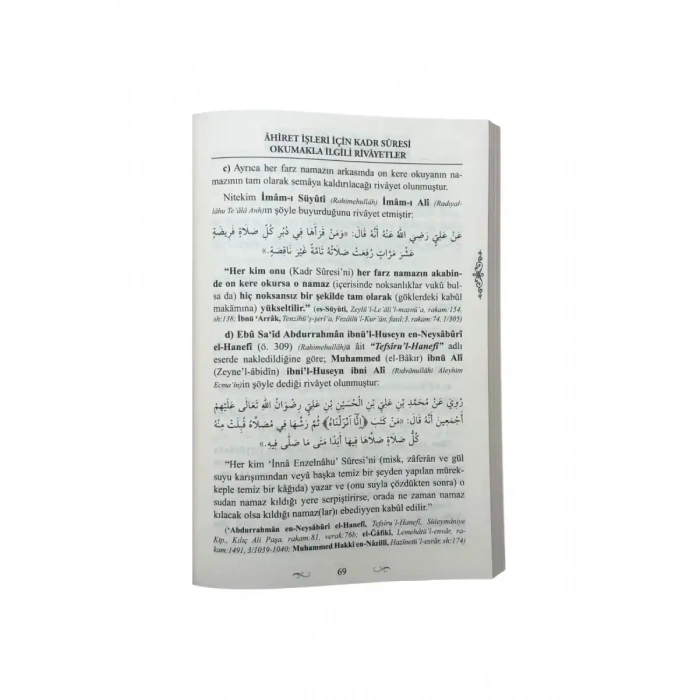 ÂHİRET İŞLERİ İÇİN KADR SÛRESİ
OKUMAKLA İLGİLİ RİVÂYETLER
c) Ayrıca her farz namazın arkasında on kere okuyanın na-
mazının tam olarak semâya kaldırılacağı rivâyet olunmuştur.
Nitekim İmâm-ı Süyûtî (Rahimehullâh) İmâm-ı Alî (Radıyal-
lâhu Te'âlâ Anh)ın şöyle buyurduğunu rivâyet etmiştir:
عَنْ عَلِيٍّ رَضِيَ اللهُ عَنْهُ أَنَّهُ قَالَ: «وَمَنْ قَرَأَهَا فِي دُبُرِ كُلِّ صَلَاةٍ فَرِيضَةٍ
عَشْرَ مَرَّاتٍ رُفِعَتْ صَلَاتُهُ تَامَّةً غَيْرَ نَاقِصَةٍ.»
“Her kim onu (Kadr Sûresi'ni) her farz namazın akabin-
de on kere okursa o namaz (içerisinde noksanlıklar vukû bul-
sa da) hiç noksansız bir şekilde tam olarak (göklerdeki kabûl
makâmına) yükseltilir.” (es-Süyûtî, Zeylü'l-Le'âli'l-masnû'a, rakam:154,
sh:138; İbnü 'Arrâk, Tenzîhü'ş-şerî'a, Fezâilü'l-Kur'ân, fasıl:3, rakam:74, 1/305)
d) Ebû Sa'îd Abdurrahmân ibnü'l-Huseyn en-Neysâbûrî
el-Hanefî (ö. 309) (Rahimehullâh)a âit “Tefsîru'l-Hanefî” adlı
eserde nakledildiğine göre; Muhammed (el-Bâkır) ibnü Alî
(Zeyne'l-âbidîn) ibni'l-Huseyn ibni Alî (Rıdvânullâhi Aleyhim
Ecma'în)in şöyle dediği rivâyet olunmuştur:
رُوِيَ عَنْ مُحَمَّدِ بْنِ عَلِيِّ بْنِ الْحُسَيْنِ بْنِ عَلِيٍّ رِضْوَانُ اللهِ تَعَالَى عَلَيْهِمْ
أَجْمَعِينَ أَنَّهُ قَالَ: «مَنْ كَتَبَ ﴿إِنَّا أَنْزَلْنَاهُ﴾ ثُمَّ رَشَّهَا فِي مُصَلَّاهُ قُبِلَتْ مِنْهُ
كُلُّ صَلَاةٍ صَلَّاهَا فِيهَا أَبَدًا مَتَى مَا صَلَّى فِيهِ.»
“Her kim ‘İnnâ Enzelnâhu’ Sûresi'ni (misk, zâferan ve gül
suyu karışımından veyâ başka temiz bir şeyden yapılan mürek-
keple temiz bir kâğıda) yazar ve (onu suyla çözdükten sonra) o
sudan namaz kıldığı yere serpiştirirse, orada ne zaman namaz
kılacak olsa kıldığı namaz(lar)ı ebediyyen kabûl edilir.”
('Abdurrahmân en-Neysâbûrî el-Hanefî, Tefsîru'l-Hanefî, Süleymâniye
Ktp., Kılıç Ali Paşa, rakam:81, verak:76b; el-Ğâfikî, Lemehâtü'l-envâr, ra-
kam:1491, 3/1039-1040; Muhammed Hakkî en-Nâzillî, Hazînetü'l-esrâr, sh:174)
69